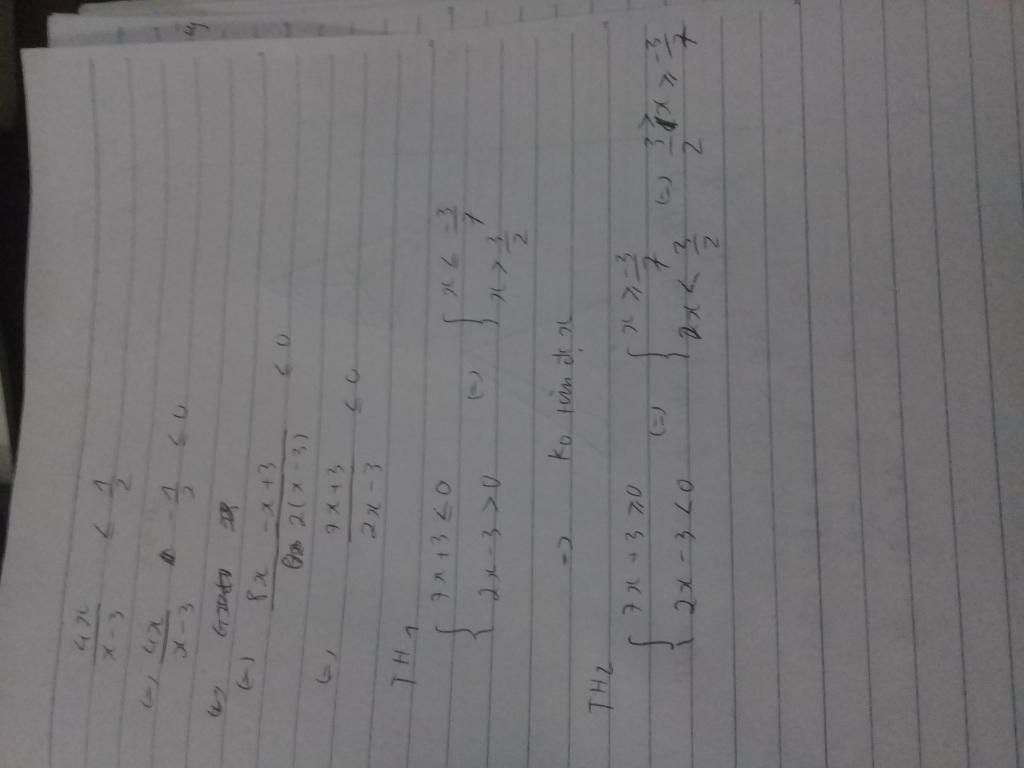 4x/(x-3) ≤ 1/2
(=) 4x/(x-3) - 1/2 ≤ 0
(=)
(=) (8x - x + 3)/(2(x-3)) ≤ 0
(=) (7x+3)/(2x-3) ≤ 0
TH1
{ 7x+3 ≤ 0 (=) { x ≤ -3/7
{ 2x-3 > 0 { x > 3/2
=) ko tìm đc x
TH2
{ 7x+3 ≥ 0 (=) { x ≥ -3/7 (=) 3/2 > x ≥ -3/7
{ 2x-3 ≤ 0 { 2x < 3/2